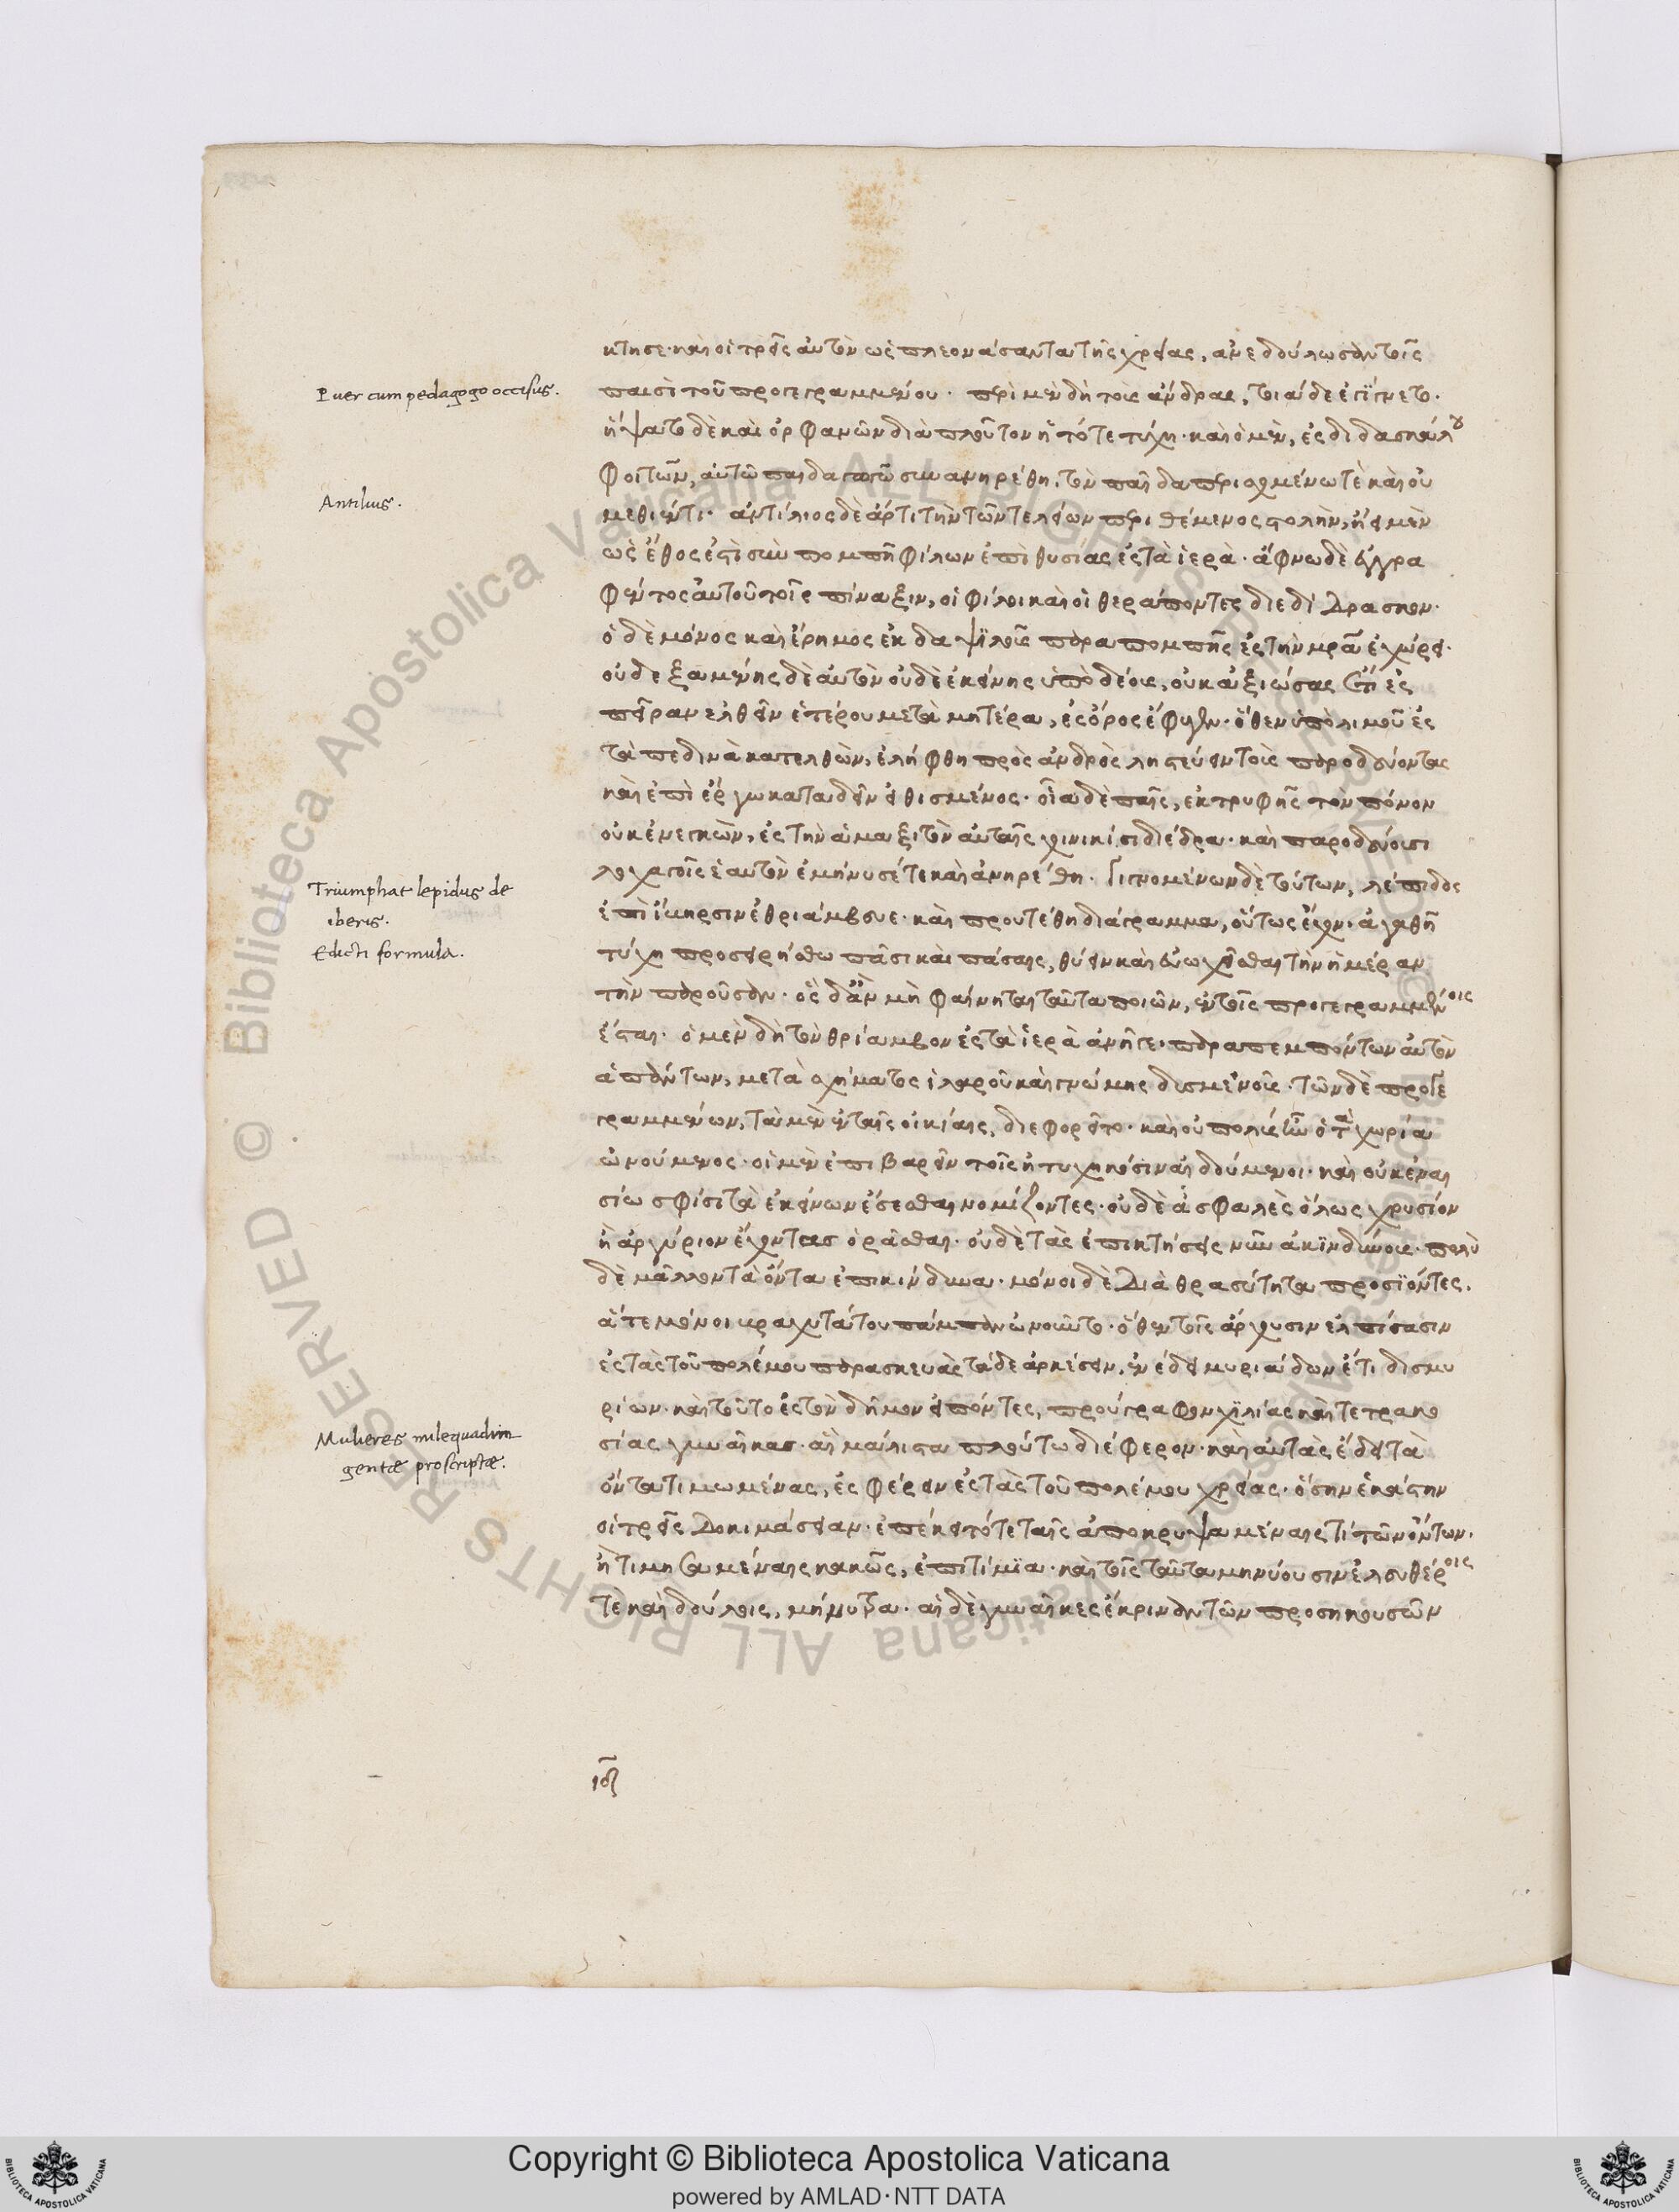 κτησε· καὶ οἱ τρεῖς αὐτὸν ὡς πλεονάσαντα τῆς χρείας, ἀνεδούλωσαν τοῖς
Puer cum pedagogo occisus.
παισὶ τοῦ προγεγραμμένου. περὶ μὲν δὴ τοὺς ἄνδρας, τοιάδε ἐγίγνετο.
ἥψατο δὲ καὶ ὀρφανῶν διὰ πλοῦτον ἡ τότε τύχη· καὶ ὁ μὲν, ἐς διδασκάλου
φοιτῶν, αὐτῷ παιδαγωγῷ συνανηρέθη, τὸν παῖδα περισχομένω τὲ καὶ οὐ
Antilius.
μεθιέντι. ἀντίλιος δὲ ἄρτι τὴν τῶν τελείων περιθέμενος στολὴν, ᾔει μὲν
ὡς ἔθος ἐστὶ σὺν πομπῇ φίλων ἐπὶ θυσίας ἐς τὰ ἱερά. ἄφνω δὲ ἐγγρα
φέντος αὐτοῦ τοῖς πίναξιν, οἱ φίλοι καὶ οἱ θεράποντες διεδίδρασκον.
ὁ δὲ μόνος καὶ ἔρημος ἐκ δαψιλοῦς παραπομπῆς ἐς τὴν μρα ἐχώρει.
οὐ δεξαμένης δὲ αὐτὸν οὐδὲ ἐκείνης ὑπὸ δέους, οὐκ ἀξιώσας ἔτι ἐς
πεῖραν ἐλθεῖν ἑτέρου μετὰ μητέρα, ἐς ὄρος ἔφυγεν· ὅθεν ὑπὸ λιμοῦ ἐς
τὰ πεδινὰ κατελθὼν, ἐλήφθη πρὸς ἀνδρὸς ληστεύειν τοὺς παροδεύοντας
καὶ ἐπὶ ἔργω καταδεῖν εἰθισμένος. οἷα δὲ παῖς, ἐκ τρυφῆς τὸν πόνον
οὐκ ἐνεγκὼν, ἐς τὴν ἁμαξιτὸν αὐταῖς χοινικίσι διέδρα· καὶ παροδεύουσι
Triumphat lepidus de
λοχαγοῖς ἑαυτὸν ἐμήνυσέ τε καὶ ἀνηρέθη. Γιγνομένων δὲ τούτων, λέπιδος
iberis.
ἐπὶ ἴβηρσιν ἐθριάμβευε· καὶ προυτέθη διάγραμμα, οὕτως ἔχον. ἀγαθῇ
Edicti formula.
τύχη προσειρήσθω πᾶσι καὶ πάσαις, θύειν καὶ εὐωχεῖσθαι τὴν ἡμέραν
τὴν παροῦσαν. ὃς δ' ἂν μὴ φαίνηται ταῦτα ποιῶν, ἐν τοῖς προγεγραμμένοις
ἔσται. ὁ μὲν δὴ τὸν θρίαμβον ἐς τὰ ἱερὰ ἀνῆγε, παραπεμπόντων αὐτὸν
ἁπάντων, μετὰ σχήματος ἱλαροῦ καὶ γνώμης δυσμενοῦς. τῶν δὲ προγε
γραμμένων, τὰ μὲν ἐν ταῖς οἰκίαις, διεφορεῖτο· καὶ οὐ πολὺς ἦν ὁ τὰ χωρία
ὠνούμενος. οἱ μὲν ἐπιβαρεῖν τοῖς ἠτυχηκόσιν αἰδούμενοι· καὶ οὐκ ἐναι
σίω σφίσι τὰ ἐκείνων ἔσεσθαι νομίζοντες. οὐδὲ ἀσφαλὲς ὅλως χρυσίον
ἢ ἀργύριον ἔχοντας ὁρᾶσθαι. οὐδὲ τὰς ἐπικτήσεις νῦν ἀκινδύνους. πολὺ
δὲ μᾶλλον τὰ ὄντα ἐπικίνδυνα. μόνοι δὲ διὰ θρασύτητα προσϊόντες,
ἅτε μόνοι βραχυτάτου πάμπαν ὠνοῦντο. ὅθεν τοῖς ἄρχουσιν ἐλπίσασιν
ἐς τὰς τοῦ πολέμου παρασκευὰς τάδε ἀρκέσειν, ἐνέδει μυριάδων ἔτι δισμυ
ρίων. καὶ τοῦτο ἐς τὸν δῆμον εἰπόντες, προύγραφον χιλίας καὶ τετρακο
Mulieres mille quadrin
σίας γυναῖκας. αἳ μάλιστα πλούτω διέφερον. καὶ αὐτὰς ἔδει τὰ
gentæ proscriptæ.
ὄντα τιμωμένας, ἐσφέρειν ἐς τὰς τοῦ πολέμου χρείας. ὅσην ἑκάστην
οἱ τρεῖς δοκιμάσειαν. ἐπέκειτό τε ταῖς ἀποκρυψαμέναις τί τῶν ὄντων,
ἢ τιμησαμέναις κακῶς, ἐπιτίμια· καὶ τοῖς ταῦτα μηνύουσιν ἐλευθέροις
τὲ καὶ δούλοις, μήνυτρα. αἱ δὲ γυναῖκες ἔκριναν τῶν προσηκουσῶν